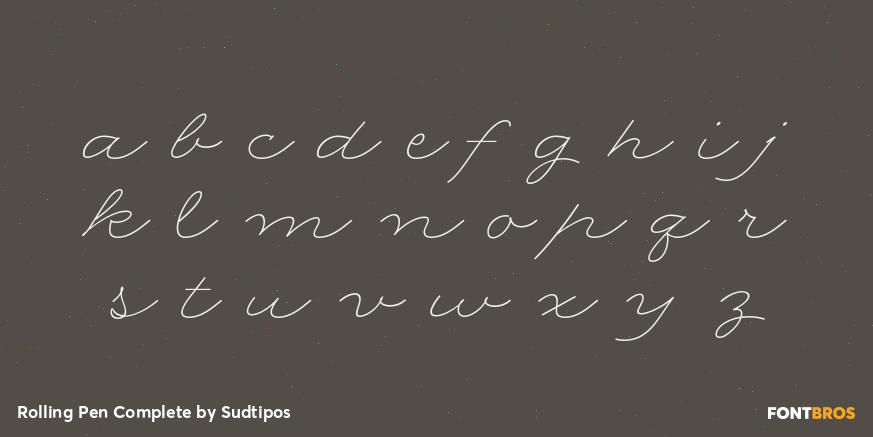 a b c d e f g h i j
k l m n o p q r
s t u v w x y z
Rolling Pen Complete by Sudtipos
FONTBROS